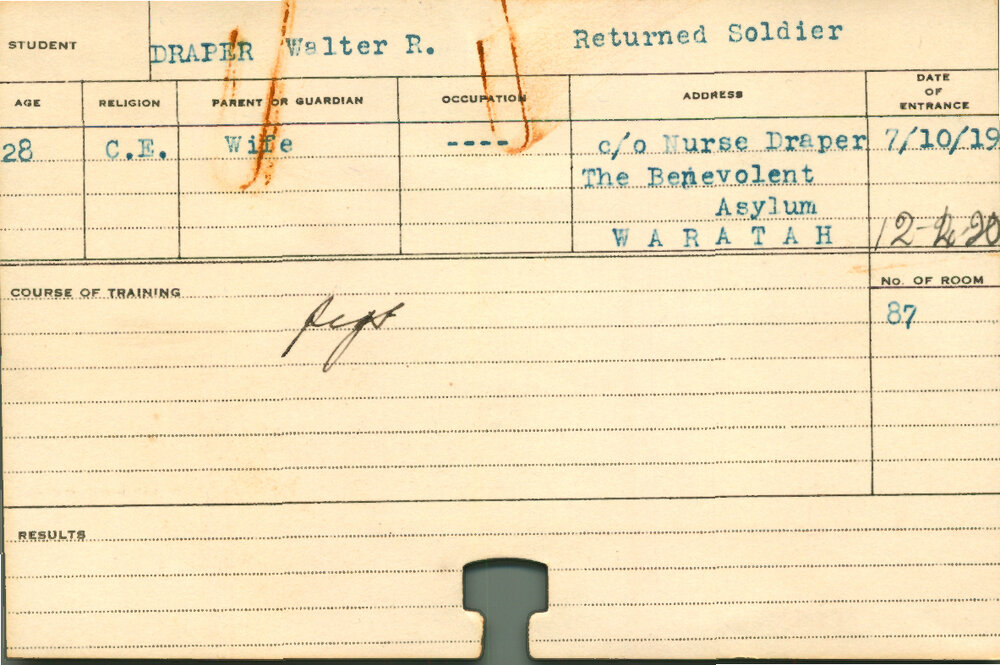 STUDENT DRAPER Walter R. Returned Soldier
AGE RELIGION PARENT OR GUARDIAN OCCUPATION ADDRESS DATE OF ENTRANCE
28 C.E. Wife ---- c/o Nurse Draper 7/10/19
The Benevolent
Asylum
W A R A T A H 12-4-20
COURSE OF TRAINING No. OF ROOM
pigs 87
RESULTS